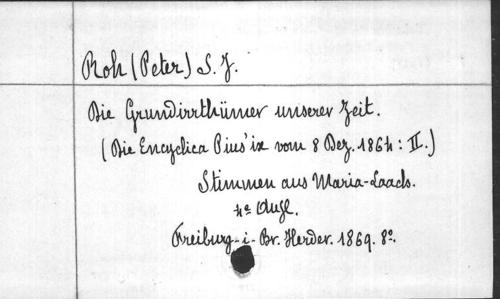 Roh (Peter) S. J.
Die Grundirrthümer unserer Zeit.
(Die Encyclica Pius' ix vom 8 Dez. 1864: II.)
Stimmen aus Maria-Laach.
4e Aufl.
Freiburg-i-Br. Herder. 1869. 8º.